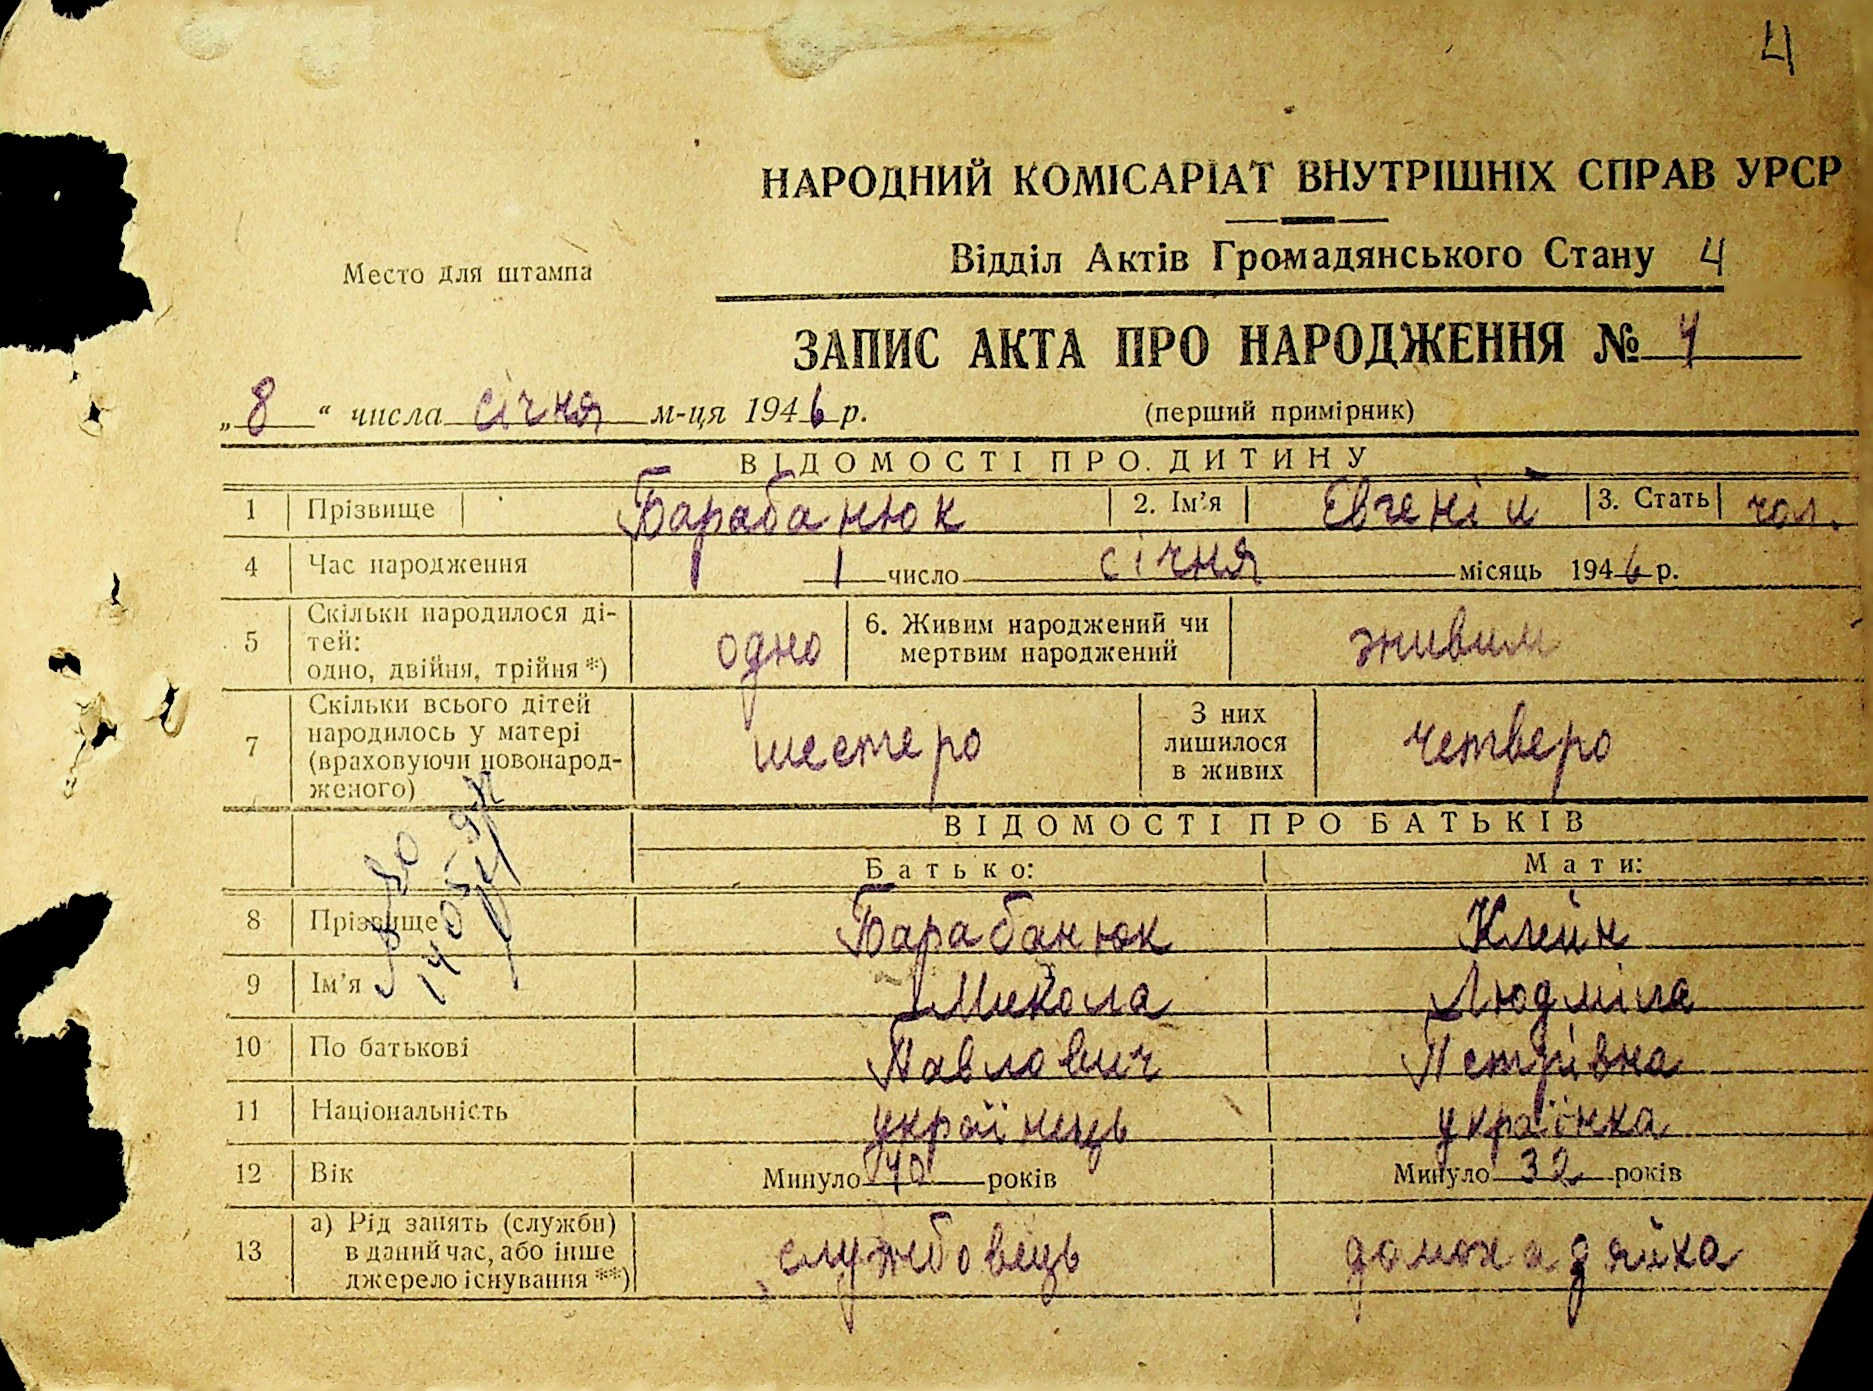 4
НАРОДНИЙ КОМІСАРІАТ ВНУТРІШНІХ СПРАВ УРСР
Відділ Актів Громадянського Стану 4
Место для штампа
ЗАПИС АКТА ПРО НАРОДЖЕННЯ № 4
„8“ числа січня м-ця 1946 р.
(перший примірник)
ВІДОМОСТІ ПРО ДИТИНУ
1 Прізвище Барабанюк 2. Ім'я Євгеній 3. Стать чол.
4 Час народження 1 число січня місяць 1946 р.
5 Скільки народилося ді-
тей:
одно, двійня, трійня *) одно 6. Живим народжений чи
мертвим народжений живим
7 Скільки всього дітей
народилось у матері
(враховуючи новонарод-
женого) шестеро З них
лишилося
в живих четверо
ВІДОМОСТІ ПРО БАТЬКІВ
Батько: Мати:
8 Прізвище Барабанюк Клейн
9 Ім'я Микола Людміла
10 По батькові Павлович Петрівна
11 Національність українець українка
12 Вік Минуло 40 років Минуло 32 років
13 а) Рід занять (служби)
в даний час, або інше
джерело існування **) службовець домохадяйка